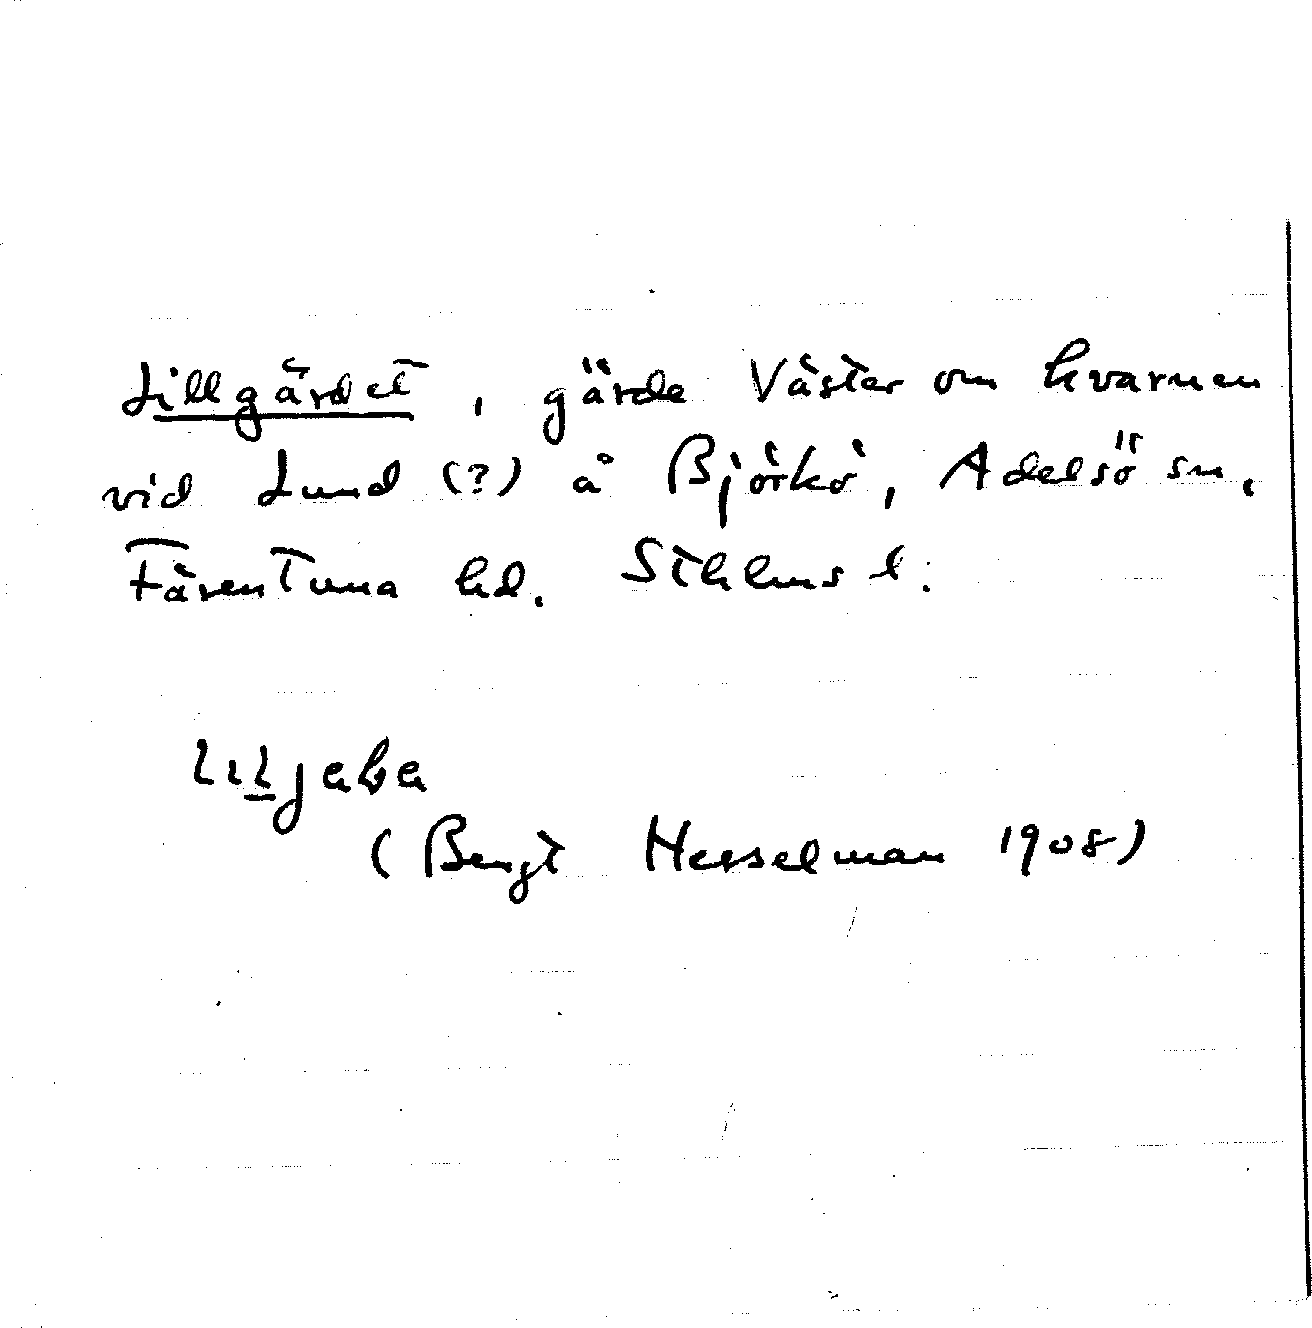 Lillgärdet, gärde väster om kvarnen
vid Lund (?) å Björkö, Adelsö sn,
Färentuna hd. Sthlms l.
(Bengt Hesselman 1908)